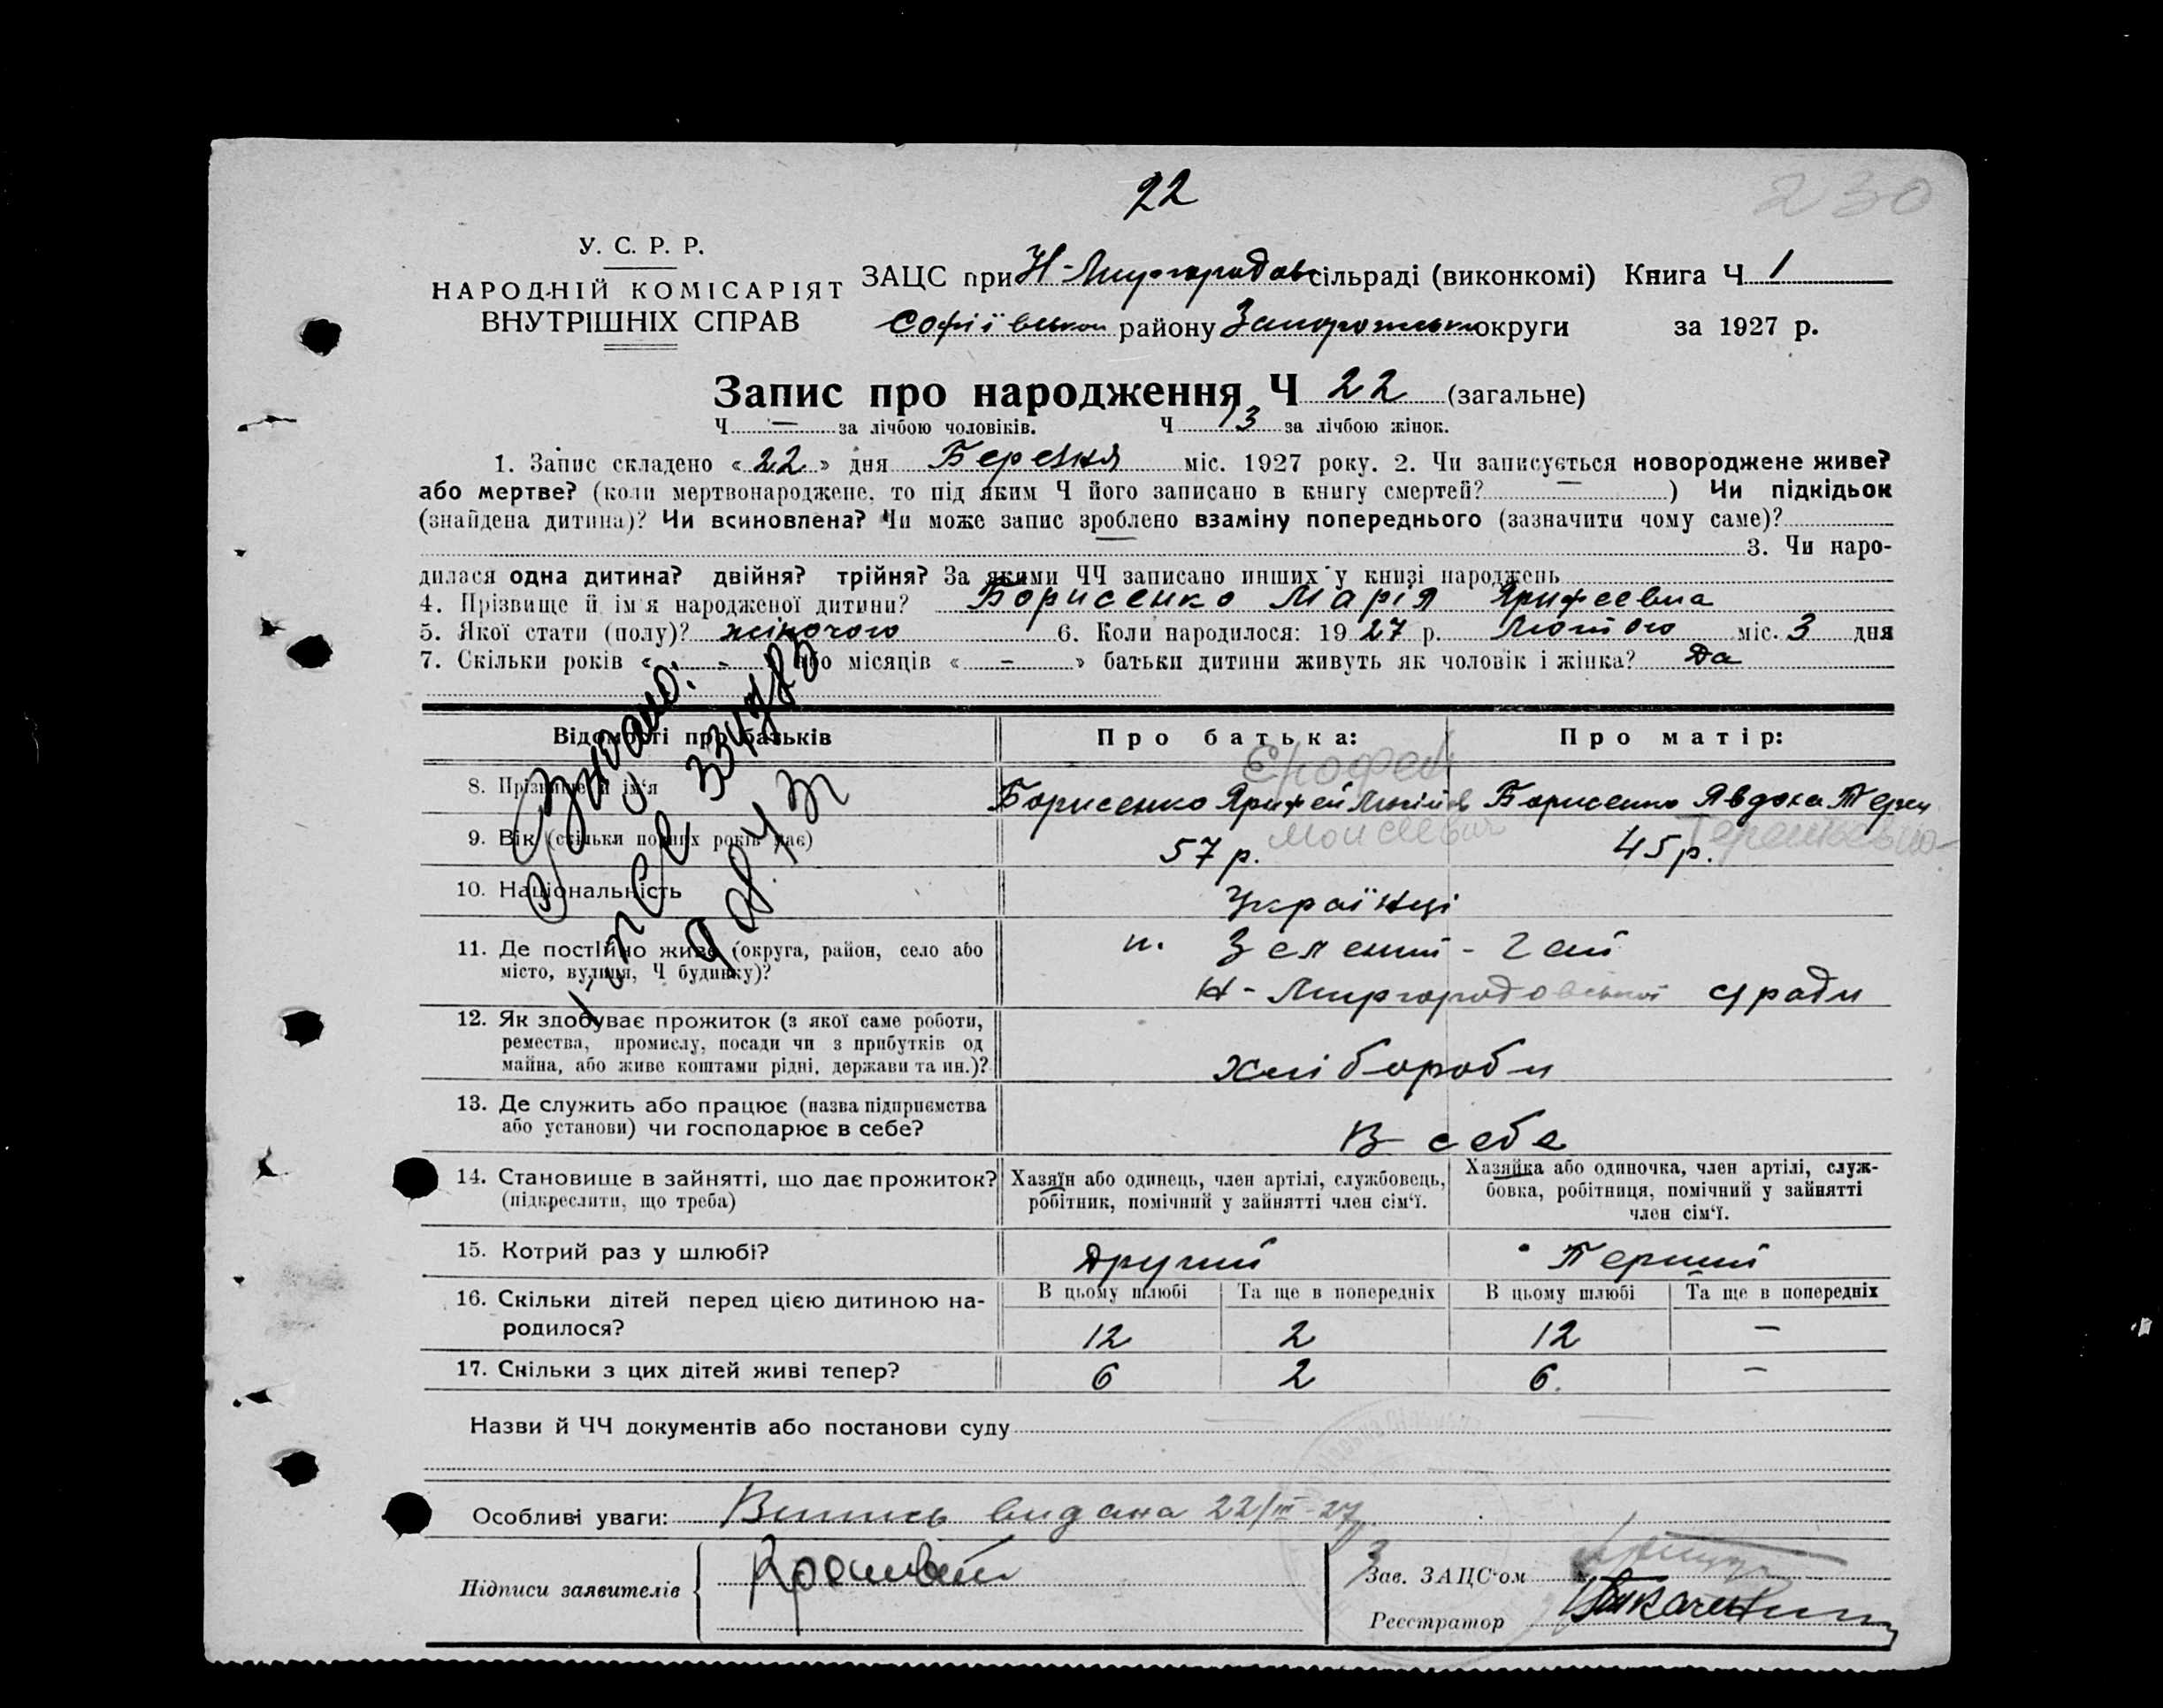 22
230
У. С. Р. Р.
НАРОДНІЙ КОМІСАРІЯТ
ВНУТРІШНІХ СПРАВ
ЗАЦС при Н-Миргородовс сільраді (виконкомі) Книга Ч 1
Софіївськом району округи за 1927 р.
Запис про народження Ч 22 (загальне)
Ч — за лічбою чоловіків. Ч 13 за лічбою жінок.
1. Запис складено « 22 » дня Березня міс. 1927 року. 2. Чи записується новороджене живе?
або мертве? (коли мертвонароджене, то під яким Ч його записано в книгу смертей? — ) Чи підкідьок
(знайдена дитина)? Чи всиновлена? Чи може запис зроблено взаміну попереднього (зазначити чому саме)?
— 3. Чи наро-
дилася одна дитина? двійня? трійня? За якими ЧЧ записано инших у книзі народжень
4. Прізвище й ім'я народженої дитини? Борисенко Марія Ярифеевна
5. Якої стати (полу)? жіночого 6. Коли народилося: 1927 р. Лютого міс. 3 дня
7. Скільки років « - » або місяців « - » батьки дитини живуть як чоловік і жінка? Да
Відомості про батьків
Про батька:
Про матір:
Ерофей
8. Прізвище й ім'я Борисенко Ярифей Борисенко Явдоха Терен
Моисеевич
9. Вік (скільки повних років має) 57 р. 45 р.
10. Національність Українці
11. Де постійно живе (округа, район, село або
місто, вулиця, Ч будинку)?
п. Зелений-Гай
Н-Миргородовської с/ради
12. Як здобуває прожиток (з якої саме роботи,
ремества, промислу, посади чи з прибутків од
майна, або живе коштами рідні, держави та ин.)?
хлібороби
13. Де служить або працює (назва підприємства
або установи) чи господарює в себе?
В себе
14. Становище в зайнятті, що дає прожиток?
(підкреслити, що треба)
Хазяїн або одинець, член артілі, службовець,
робітник, помічний у зайнятті член сім'ї.
Хазяйка або одиночка, член артілі, служ-
бовка, робітниця, помічний у зайнятті
член сім'ї.
15. Котрий раз у шлюбі? Другий Перший
16. Скільки дітей перед цією дитиною на-
родилося?
В цьому шлюбі Та ще в попередніх В цьому шлюбі Та ще в попередніх
12 2 12 —
17. Скільки з цих дітей живі тепер? 6 2 6. —
Назви й ЧЧ документів або постанови суду
Особливі уваги: Випись видана 22/III-27
Підписи заявителів
Зав. ЗАЦС'ом
Реєстратор